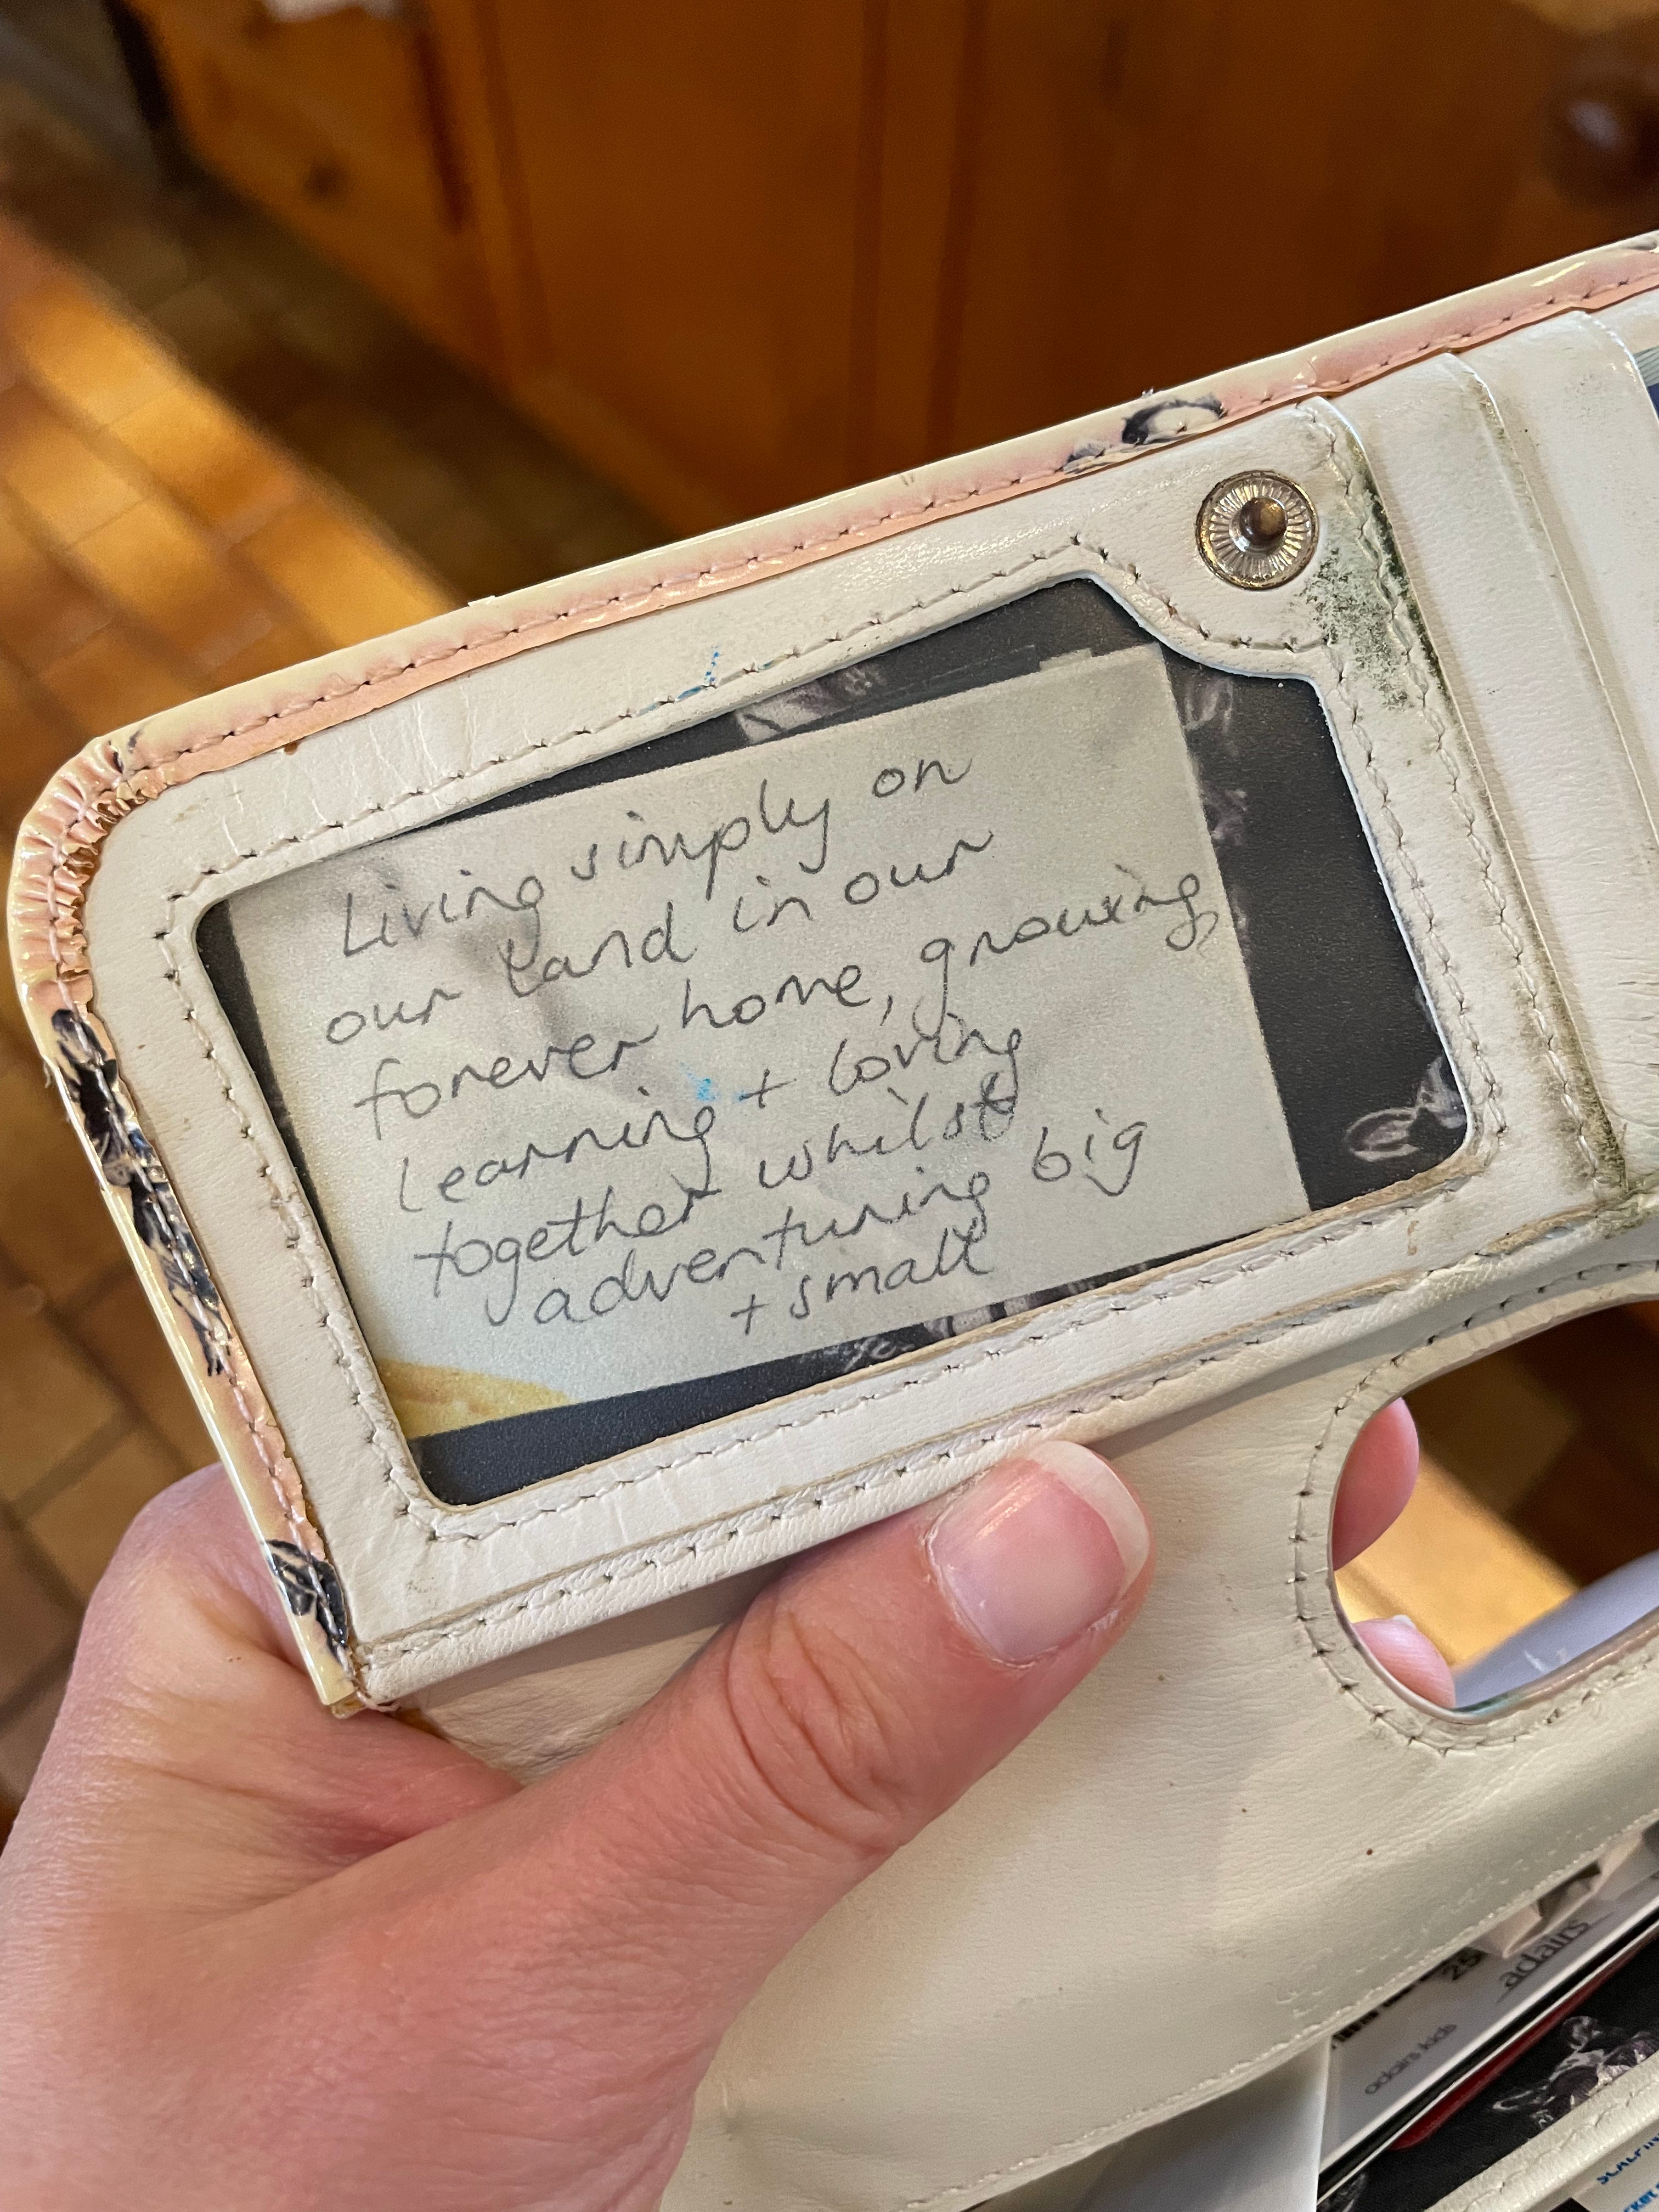 Living simply on
our land in our
forever home, growing
learning + loving
together whilst
adventuring big
+ small
25
adairs
adairs kids